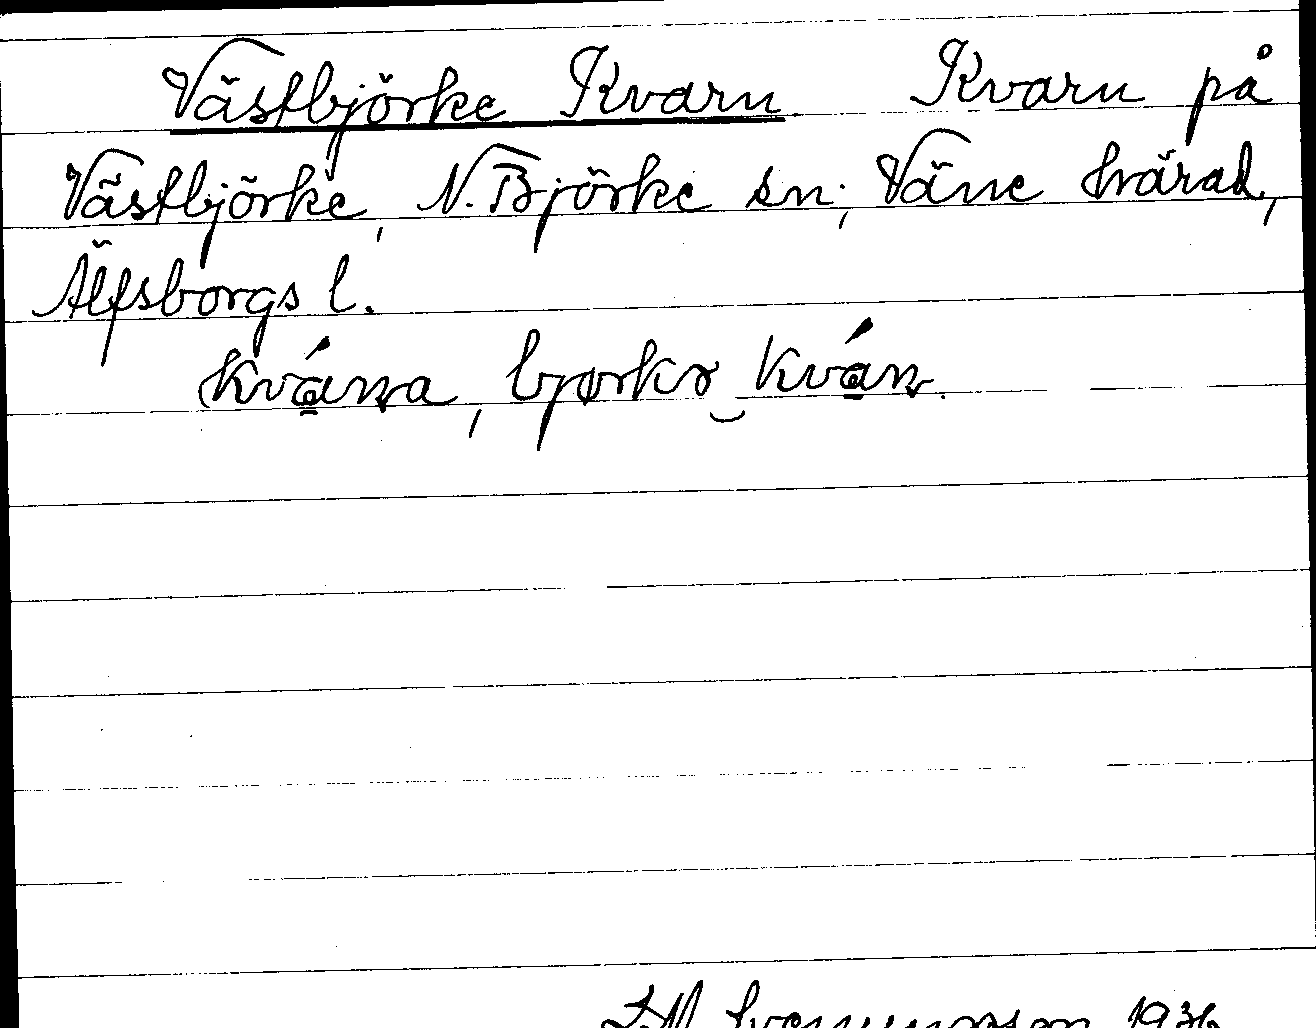 Västbjörke Kvarn Kvarn på
Västbjörke, N. Björke sn; Väne härad,
Älfsborgs l.
kvána, bjørkə kván.
1936